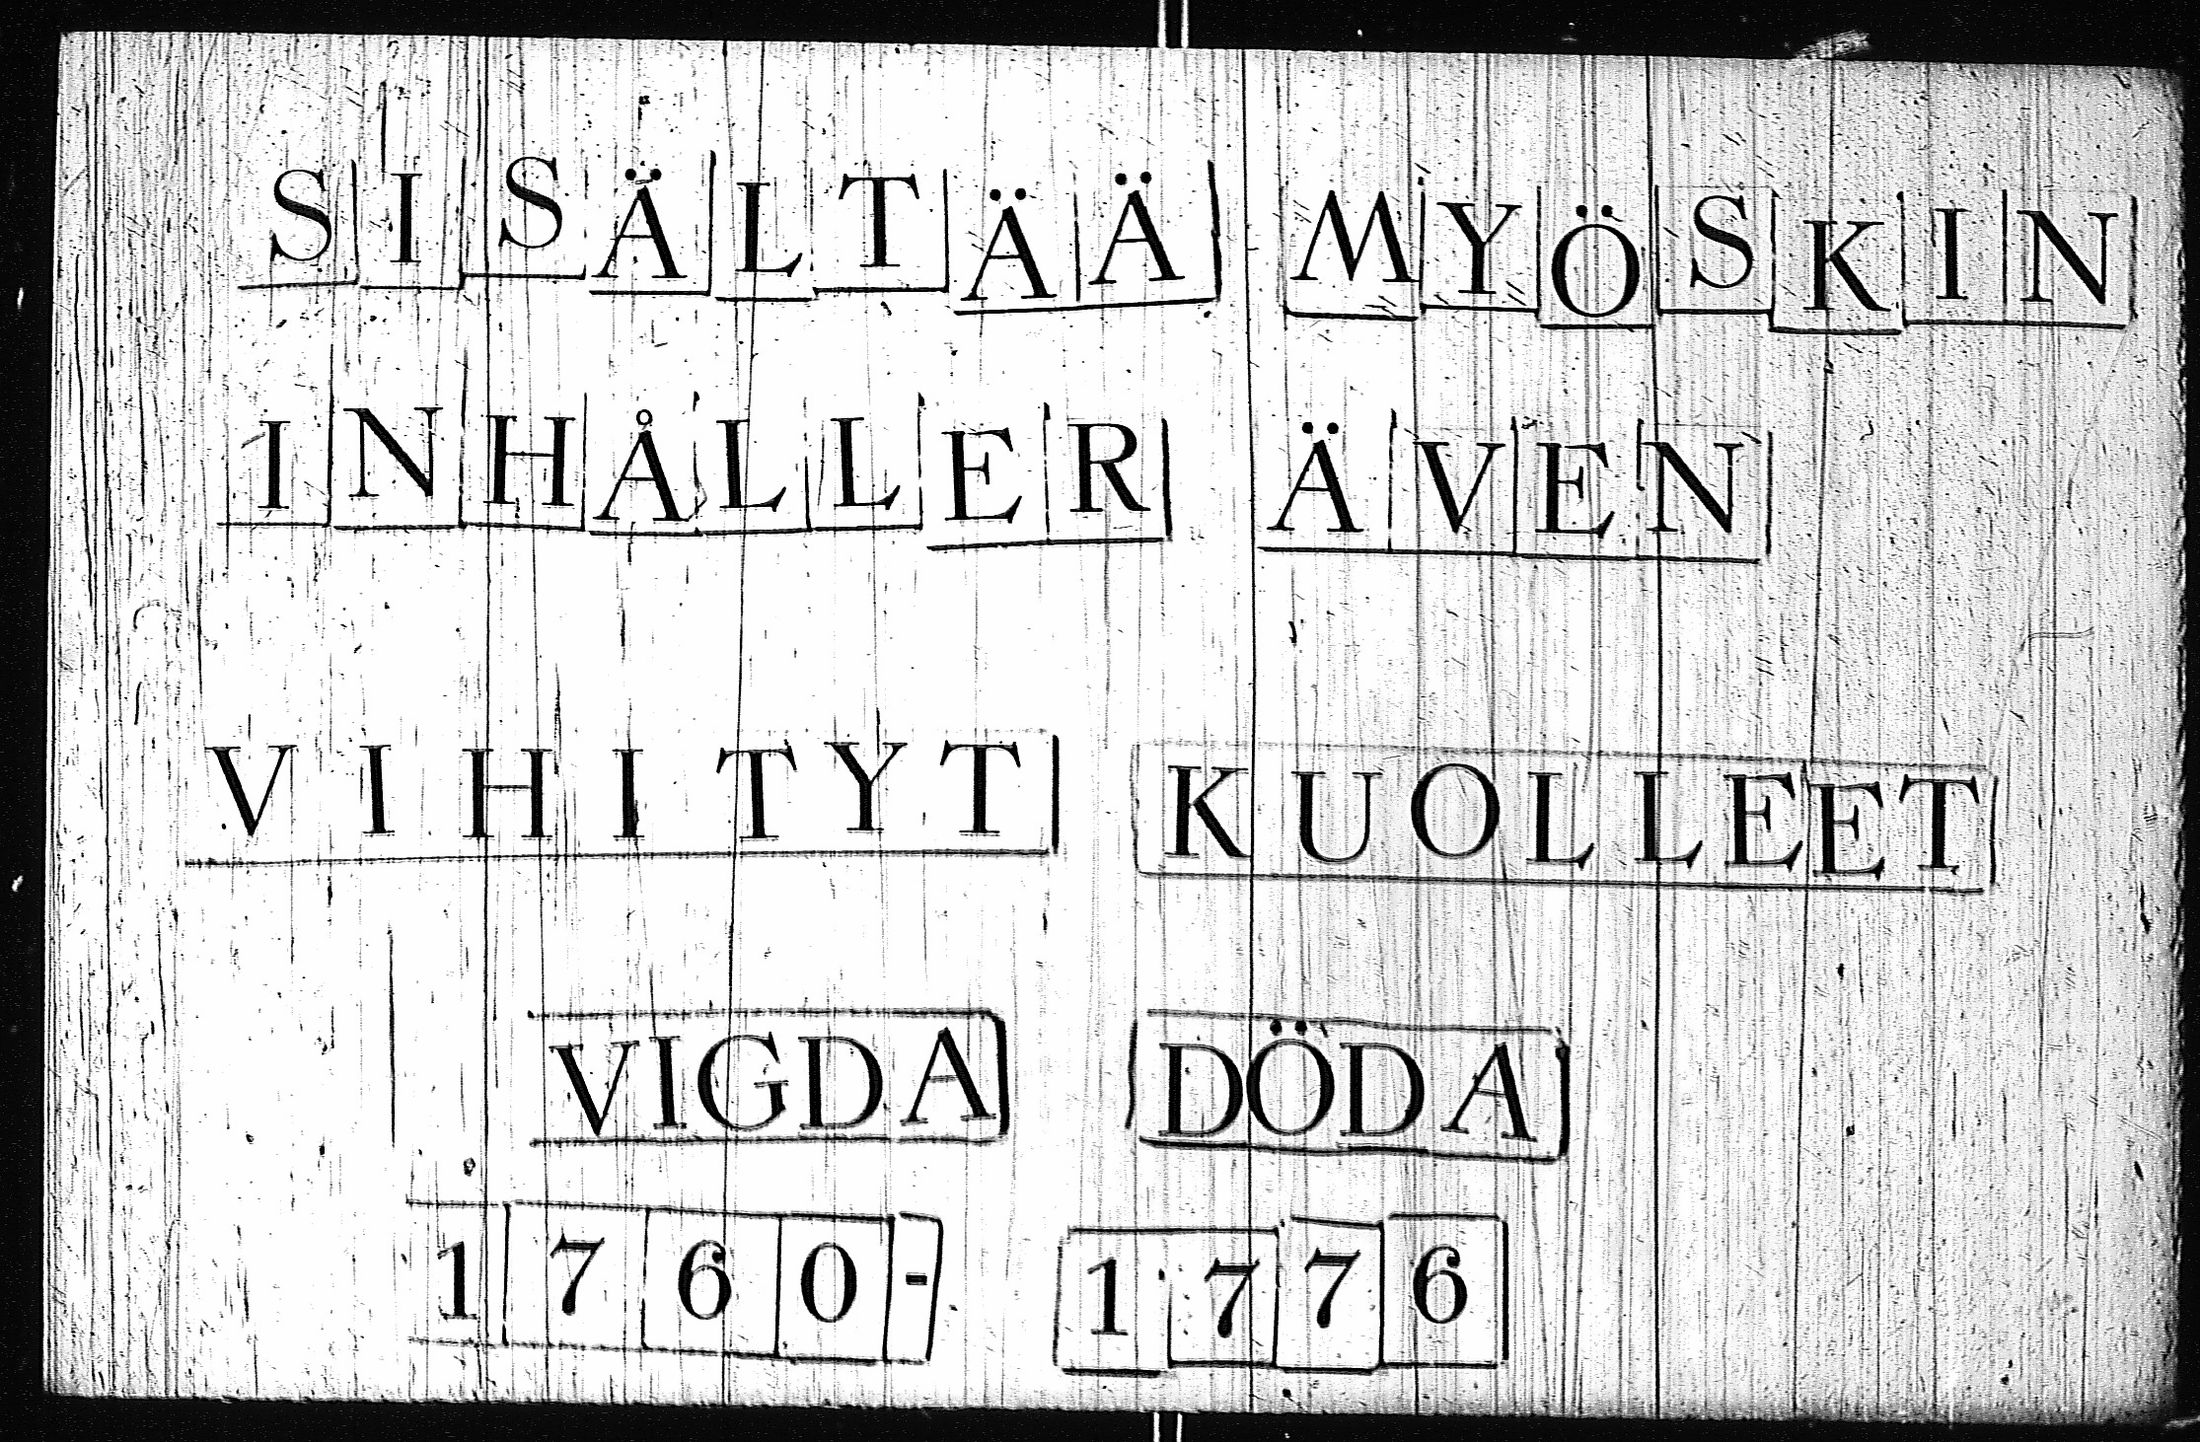 SISÄLTÄÄ MYÖSKIN
INHÅLLER ÄVEN
VIHITYT KUOLLEET
VIGDA DÖDA
1760- 1776